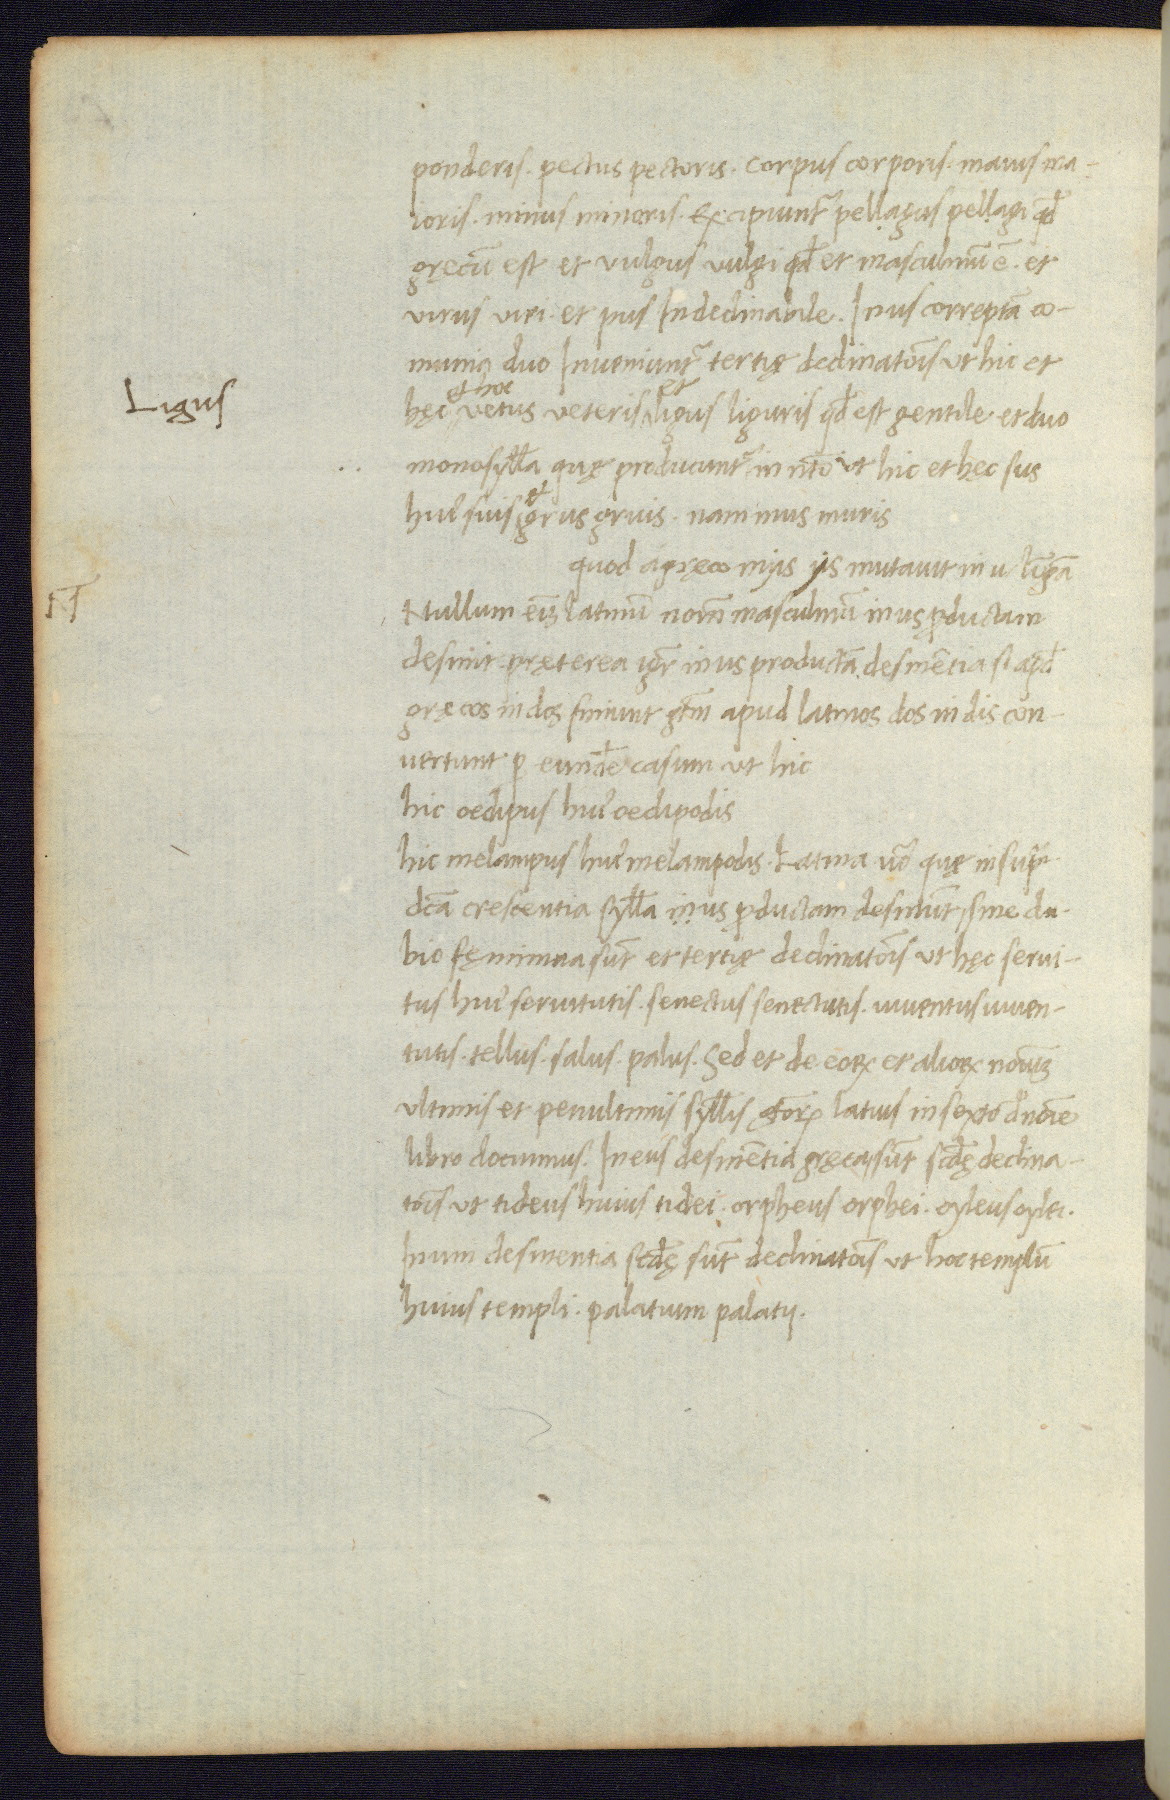 ponderis. pectus pectoris. corpus corporis. maius ma-
ioris. minus minoris. Excipiunt᷑ pellagus pellagi qđ
gręcū est et vulgus vulgi qđ et masculinū ē. et
virus viri. et pus Indeclinabile. In us correptā co-
munia duo Inveniunt᷑ tertię declinatōis ut hic et
Ligus
et hoc et
hęc vetus veteris ligus liguris qđ est gentile et duo
monosyłła quę producunt᷑ in nt̄o ut hic et hęc sus
et
huiꝰ suis grus gruis. nam mus muris
quod a gręco myis yis mutauit in u lūgā
Nullum eīꝫ latinū nom̄ masculinū in us ꝓductam
desinit. pręterea igr̄ in us productā desinētia si apđ
gręcos in dos finiunt gt̄m apud latinos dos in dis con-
uertunt ꝑ eundē casum ut hic
hic oedipus huiꝰ oedipodis
hic melampus huiꝰ melampodis. Latina ūo quę in sup̄-
dc̄a crescentia syłła in us ꝓductam desinūt sine du-
bio fęminina sūt et tertię declinatōis ut hęc serui-
tus huiꝰ seruitutis. senectus senectutis. iuuentus iuuen-
tutis. tellus. salus. palus. Sed et de eoꝝ et alioꝝ noīuꝫ
ultimis et penultimis syłłis gt̄oꝝ latius in sexto d' noīe
libro docuimus. In eus desinētia gręca sūt scđę declina-
tōis ut tideus huius tidei. orpheus orphei. oyleus oylei.
In um desinentia scđę sūt declinatōis ut hoc templū
huius templi. palatium palatij.